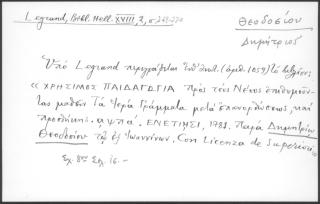 Legrand, Bibl. Hell. XVIII, 2, σ. 269-270
Θεοδοσίου
Δημήτριος
Ὑπὸ Legrand περιγράφεται (ἀριθ. 1059) τὸ βιβλίον:
«ΧΡΗΣΙΜΟΣ ΠΑΙΔΑΓΩΓΙΑ πρὸς τοὺς Νέους ἐπιθυμοῦν-
τας μαθεῖν Τὰ Ἱερὰ Γράμματα μετὰ ἐπανορθώσεως, καὶ
προσθήκης. αψπα΄. ΕΝΕΤΙΗΣΙ, 1781. Παρὰ Δημητρίῳ
Θεοδοσίου τῷ ἐξ Ἰωαννίνων, Con Licenza de' Superiori»
Σχ. 8ον Σελ. 16. —